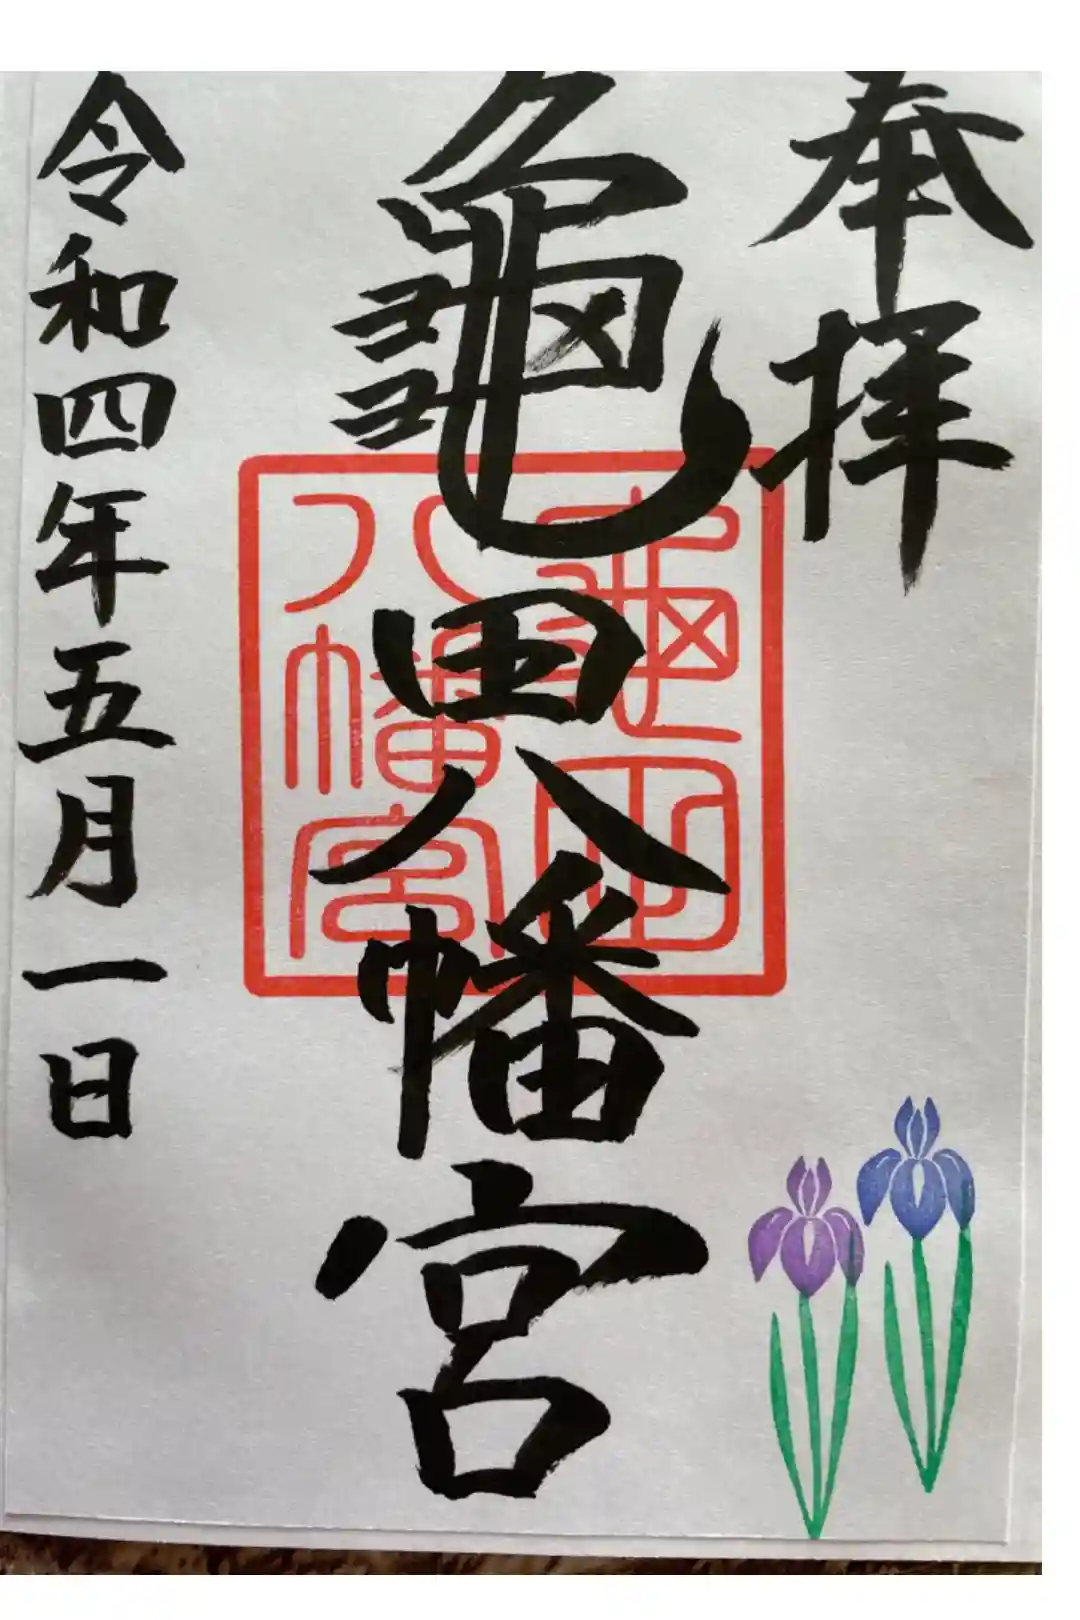 奉拝
龜田八幡宮
亀田
八幡宮
令和四年五月一日